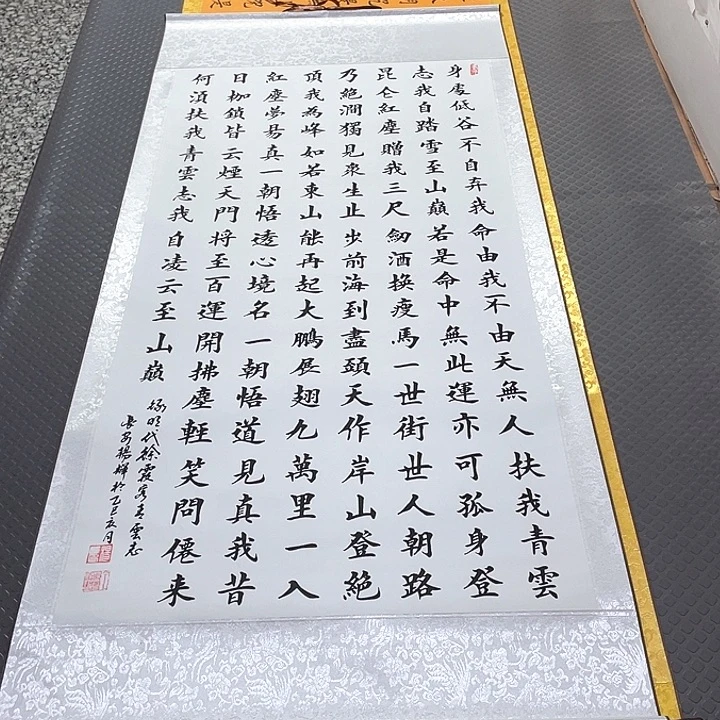 身處低谷不自弃我命由我不由天無人扶我青雲
志我自踏雪至山巔若是命中無此運亦可孤身登
昆仑紅塵贈我三尺劒酒换瘦馬一世街世人朝路
乃絕澗獨見衆生止步前海到盡頭天作岸山登絕
頂我為峰如若東山能再起大鵬展翅九萬里一入
紅塵夢易真一朝悟透心境名一朝悟道見真我昔
日枷鎖皆云煙天門将至百運開拂塵輕笑問僊来
何須扶我青雲志我自凌云至山巔
録明代徐霞客青雲志
長安楊輝於乙巳亥月